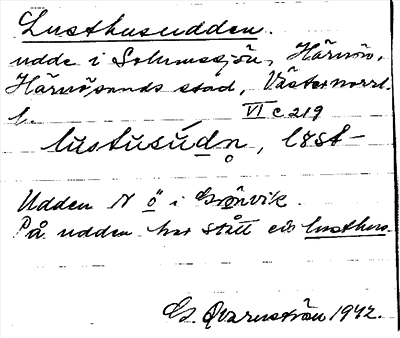 Lusthusudden.
udde i Solumssjön, Härnön,
Härnösands stad, Västernorrl.
l. VI c 219
lustusúdn̥, lɞst-
Udden N ö i Grönvik.
På udden har stått ett lusthus.
G. Qvarnström 1942.